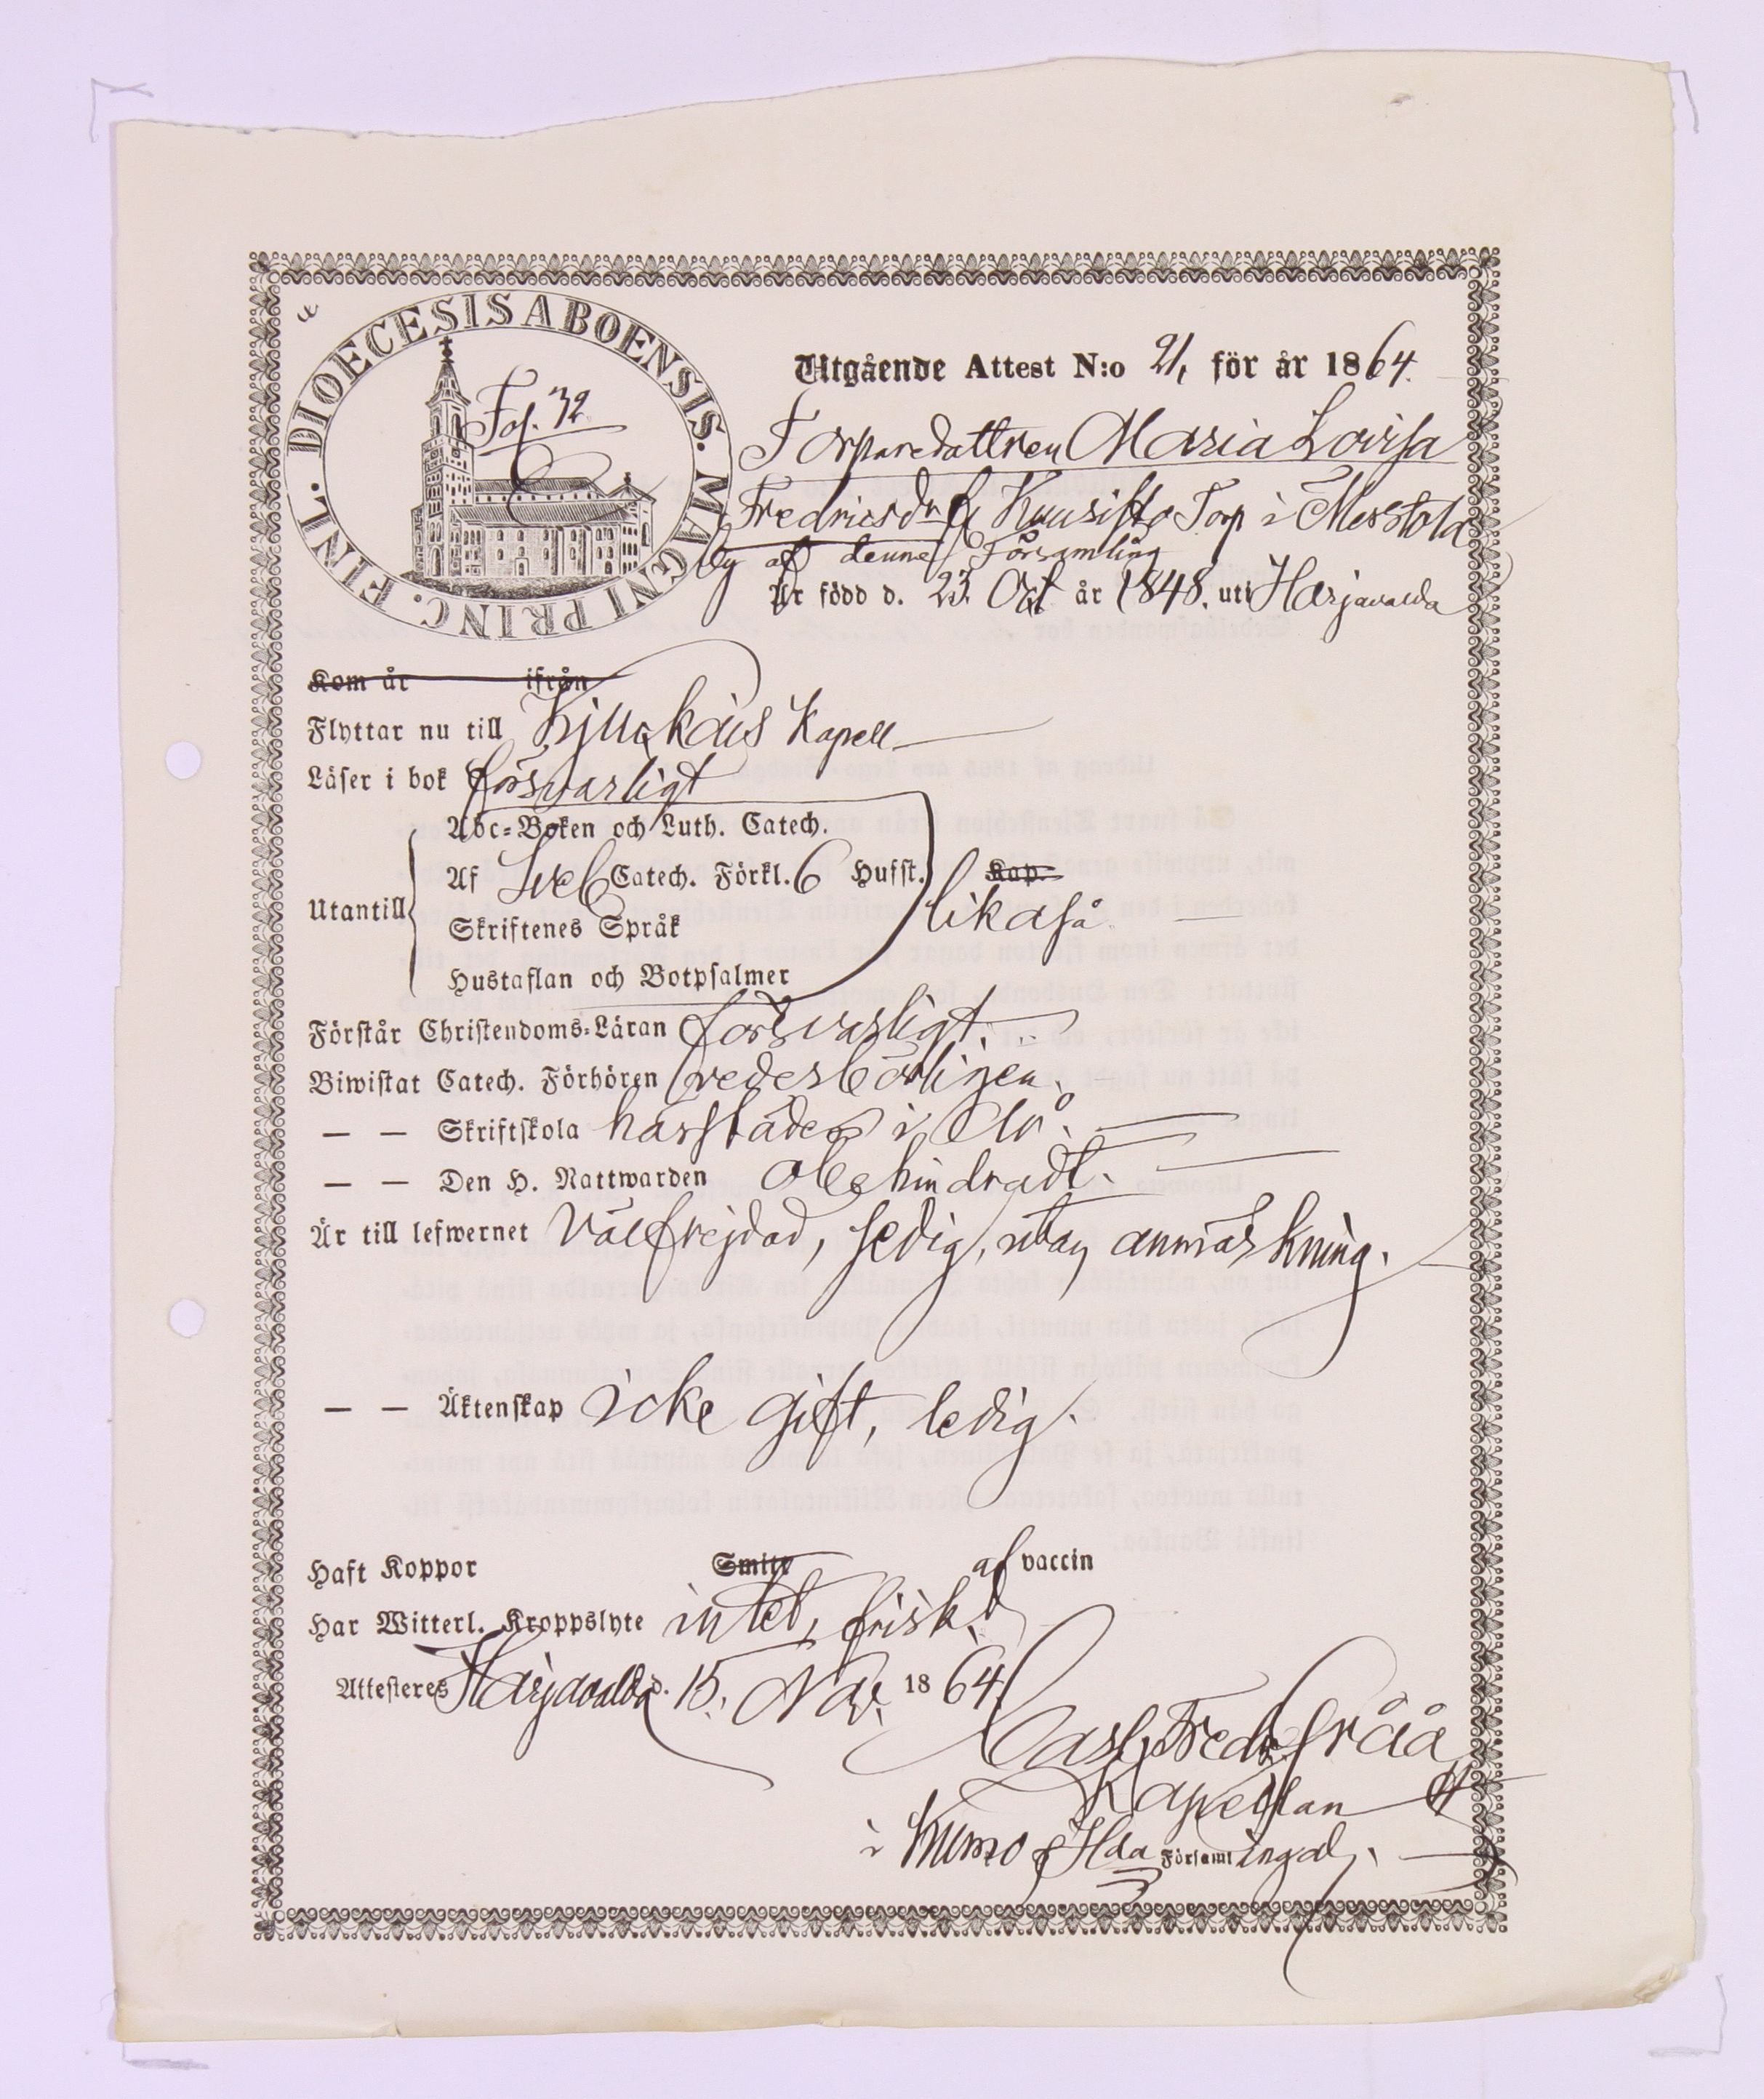 DIOECESIS ABOENSIS. MAGNI PRINC. FINL.
Fol. 32.
Utgående Attest N:o 21, för år 1864.
Torparedottren Maria Lovisa
Fredricsdr fr. Kuusisto Torp i Merstola
by af denna Församling
Är född d. 23. Oct år 1848. uti Harjavalda
Kom år ifrån
Flyttar nu till Kjukais Kapell
Läser i bok försvarligt
Utantill
Abc-Boken och Luth. Catech.
Af Sveb Catech. Förkl. 6 Hufst. Kap.
likaså
Skriftenes Språk
Hustaflan och Botpsalmer
Förstår Christendoms-Läran försvarligt.
Biwistat Catech. Förhören vederbörligen.
— — Skriftskola härstädes i år.
— — Den H. Nattwarden obehindradt.
Är till lefwernet välfrejdad, ledig, utan anmärkning.
— — Äktenskap icke gift, ledig.
Haft Koppor Smitt af vaccin
Har Witterl. Kroppslyte intet, frisk.
Attesteres Harjavalda d. 15. Nov. 1864.
Carl Fredr
Kapellan
i Kumo o Hda Församlingar.